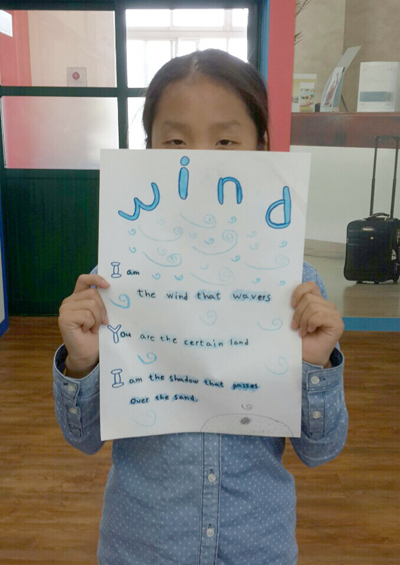 wind
I am
the wind that wavers
You are the certain land
I am the shadow that passes
over the sand.